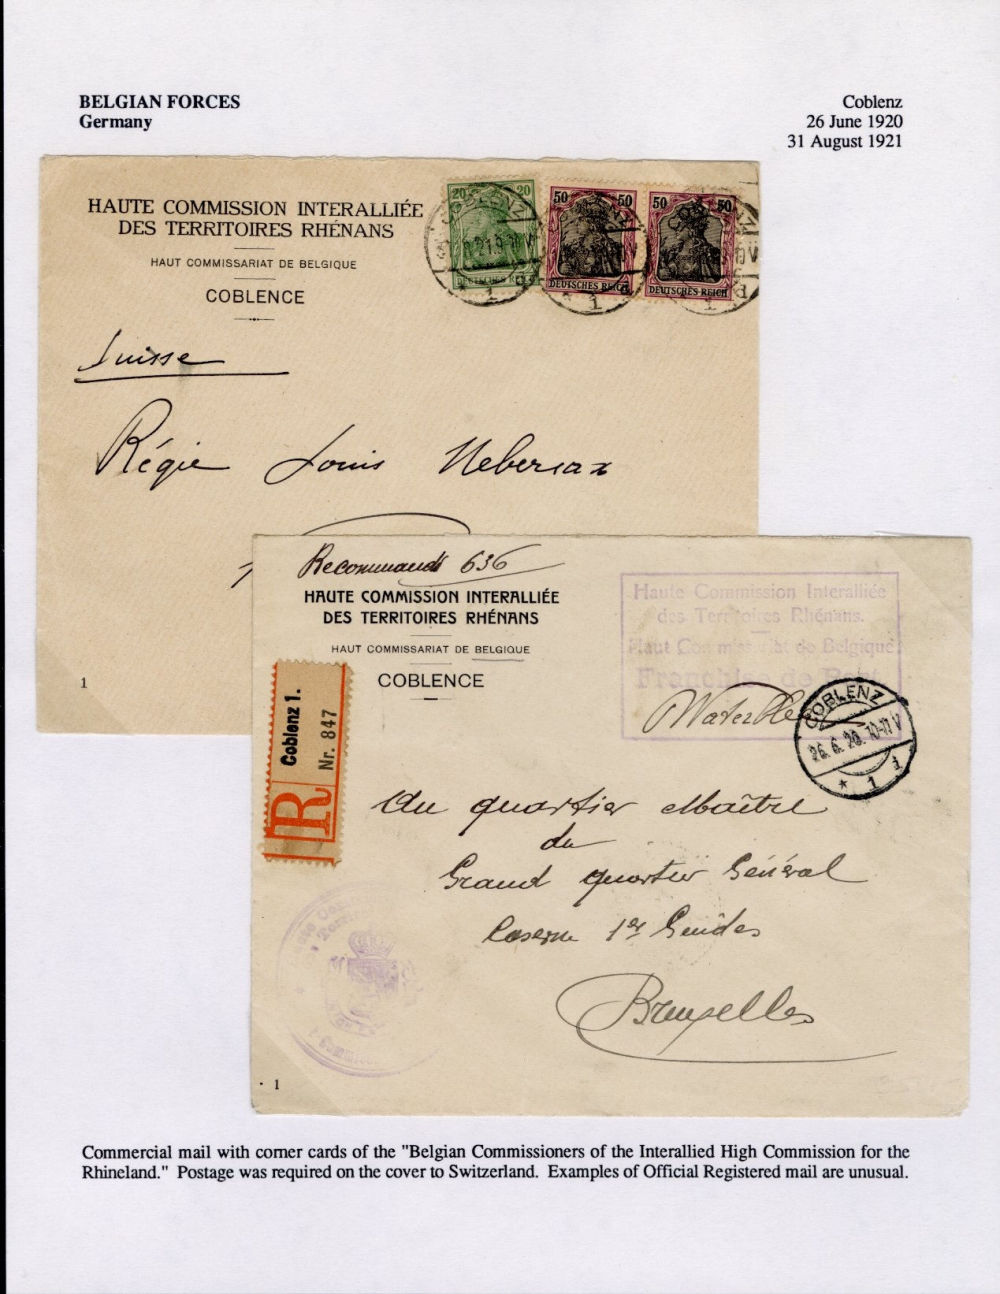 BELGIAN FORCES
Germany
Coblenz
26 June 1920
31 August 1921
HAUTE COMMISSION INTERALLIÉE
DES TERRITOIRES RHÉNANS
HAUT COMMISSARIAT DE BELGIQUE
COBLENCE
20 20
DEUTSCHES REICH
50 50
DEUTSCHES REICH
50 50
DEUTSCHES REICH
COBLENZ
1
COBLENZ
1
COBLENZ
1
Suisse
Régie Louis Nebersax
1
Recommandé 636
HAUTE COMMISSION INTERALLIÉE
DES TERRITOIRES RHÉNANS
HAUT COMMISSARIAT DE BELGIQUE
COBLENCE
Haute Commission Interalliée
des Territoires Rhénans.
Haut Commissariat de Belgique
Franchise de
COBLENZ
26.6.20. 10-11 V
* 1 d
R
Coblenz 1.
Nr. 847
Au quartier Maître
du
Grand quartier Général
Caserne 1er Guides
Bruxelles
1
Commercial mail with corner cards of the "Belgian Commissioners of the Interallied High Commission for the
Rhineland." Postage was required on the cover to Switzerland. Examples of Official Registered mail are unusual.